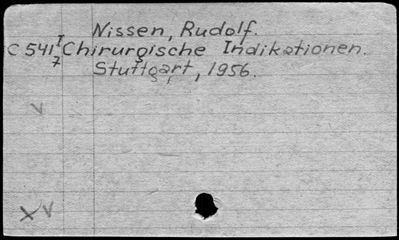 Nissen, Rudolf.
C 541 I/7 Chirurgische Indikationen.
Stuttgart, 1956.